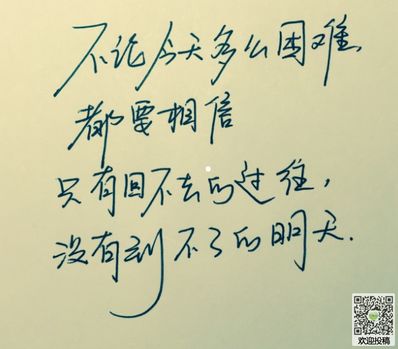 不论今天多么困难，
都要相信
只有回不去的过往，
没有到不了的明天.
欢迎投稿